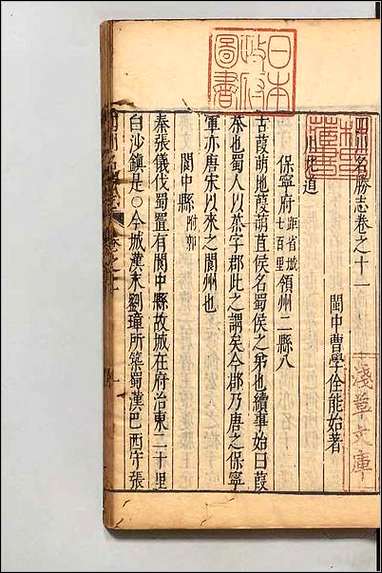 四川名勝志卷之十一
閬中曹學佺能始著
川北道
保寧府距省城七百里領州二縣八
古葭萌地葭萌苴侯名蜀侯之弟也續事始曰葭
萌也蜀人以萌字郡此之謂矣今郡乃唐之保寧
軍亦唐宋以來之閬州也
閬中縣附郭
秦張儀伐蜀置有閬中縣故城在府治東二十里
白沙鎮是○今城漢末劉璋所築蜀漢巴西守張
日本
政府
圖書
淺草文庫